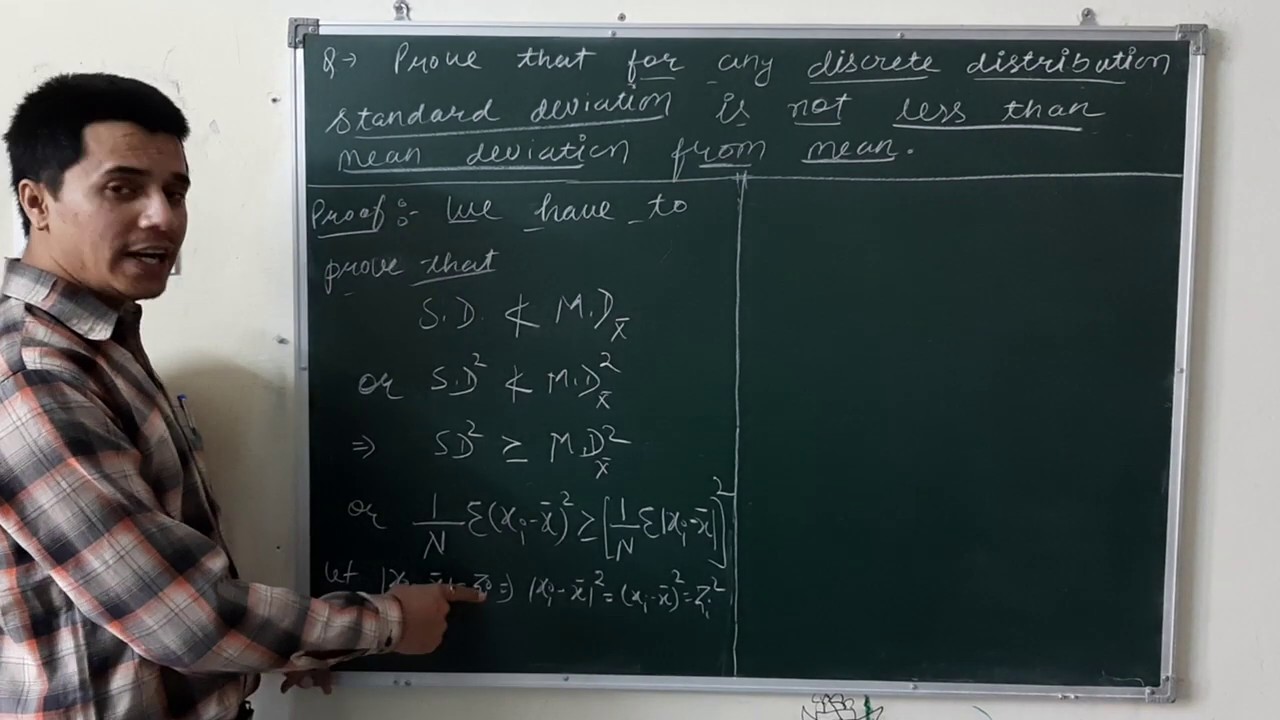 Q→ Prove that for any discrete distribution
standard deviation is not less than
mean deviation from mean.
Proof :- We have to
prove that
S.D. ≮ M.D_x̄
or S.D² ≮ M.D²_x̄
⇒ SD² ≥ M.D²_x̄
or 1/N Σ(xᵢ-x̄)² ≥ [1/N Σ|xᵢ-x̄|]²
let |xᵢ-x̄|=zᵢ ⇒ |xᵢ-x̄|² = (xᵢ-x̄)² = zᵢ²